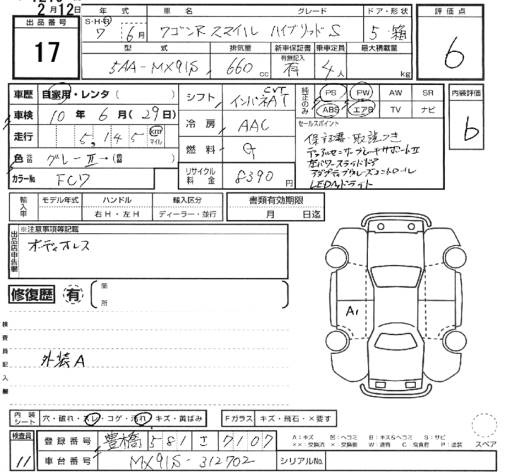 2月12日
出品番号 年式 グレード ドア・形状 評価点
17 S・H・R 7年 6月 ワゴンRスマイル ハイブリッドS 5・箱 6
型式 排気量 新車保証書 乗車定員 最大積載量
5AA-MX91S 660cc 有無記入 有 4人 kg
車歴 自家用・レンタ( ) シフト インパネAT CVT 純正のみ PS PW AW SR 内装評価
車検 10年 6月(29日) ABS エアB TV ナビ 6
冷房 AAC セールスポイント
走行 5,145 km マイル 保証書・取説つき
色 グレーⅡ→( ) 燃料 G デュアルセンサーブレーキサポートⅡ
両パワースライドドア
カラーNo FCD リサイクル料金 8390円 アダプティブクルーズコントロール
LEDヘッドライト
輸入車 モデル年式 ハンドル 輸入区分 書類有効期限
年 右H・左H ディーラー・並行 月 日迄
出品店申告欄 ※注意事項等記載
ボディオレス
修復歴 有 箇所
A1
検査員記入欄
外装A
内装シート 穴・破れ・スレ・コゲ・汚れ・キズ・黄ばみ Fガラス キズ・飛石・×要す
検査員 登録番号 豊橋 581 さ 7107 A:キズ U:ヘコミ B:キズ&ヘコミ S:サビ
××:交換済 ×:要交換 W:補修 C:腐食 P:塗装 スペア
11 車台番号 MX91S-312702 シリアルNo.